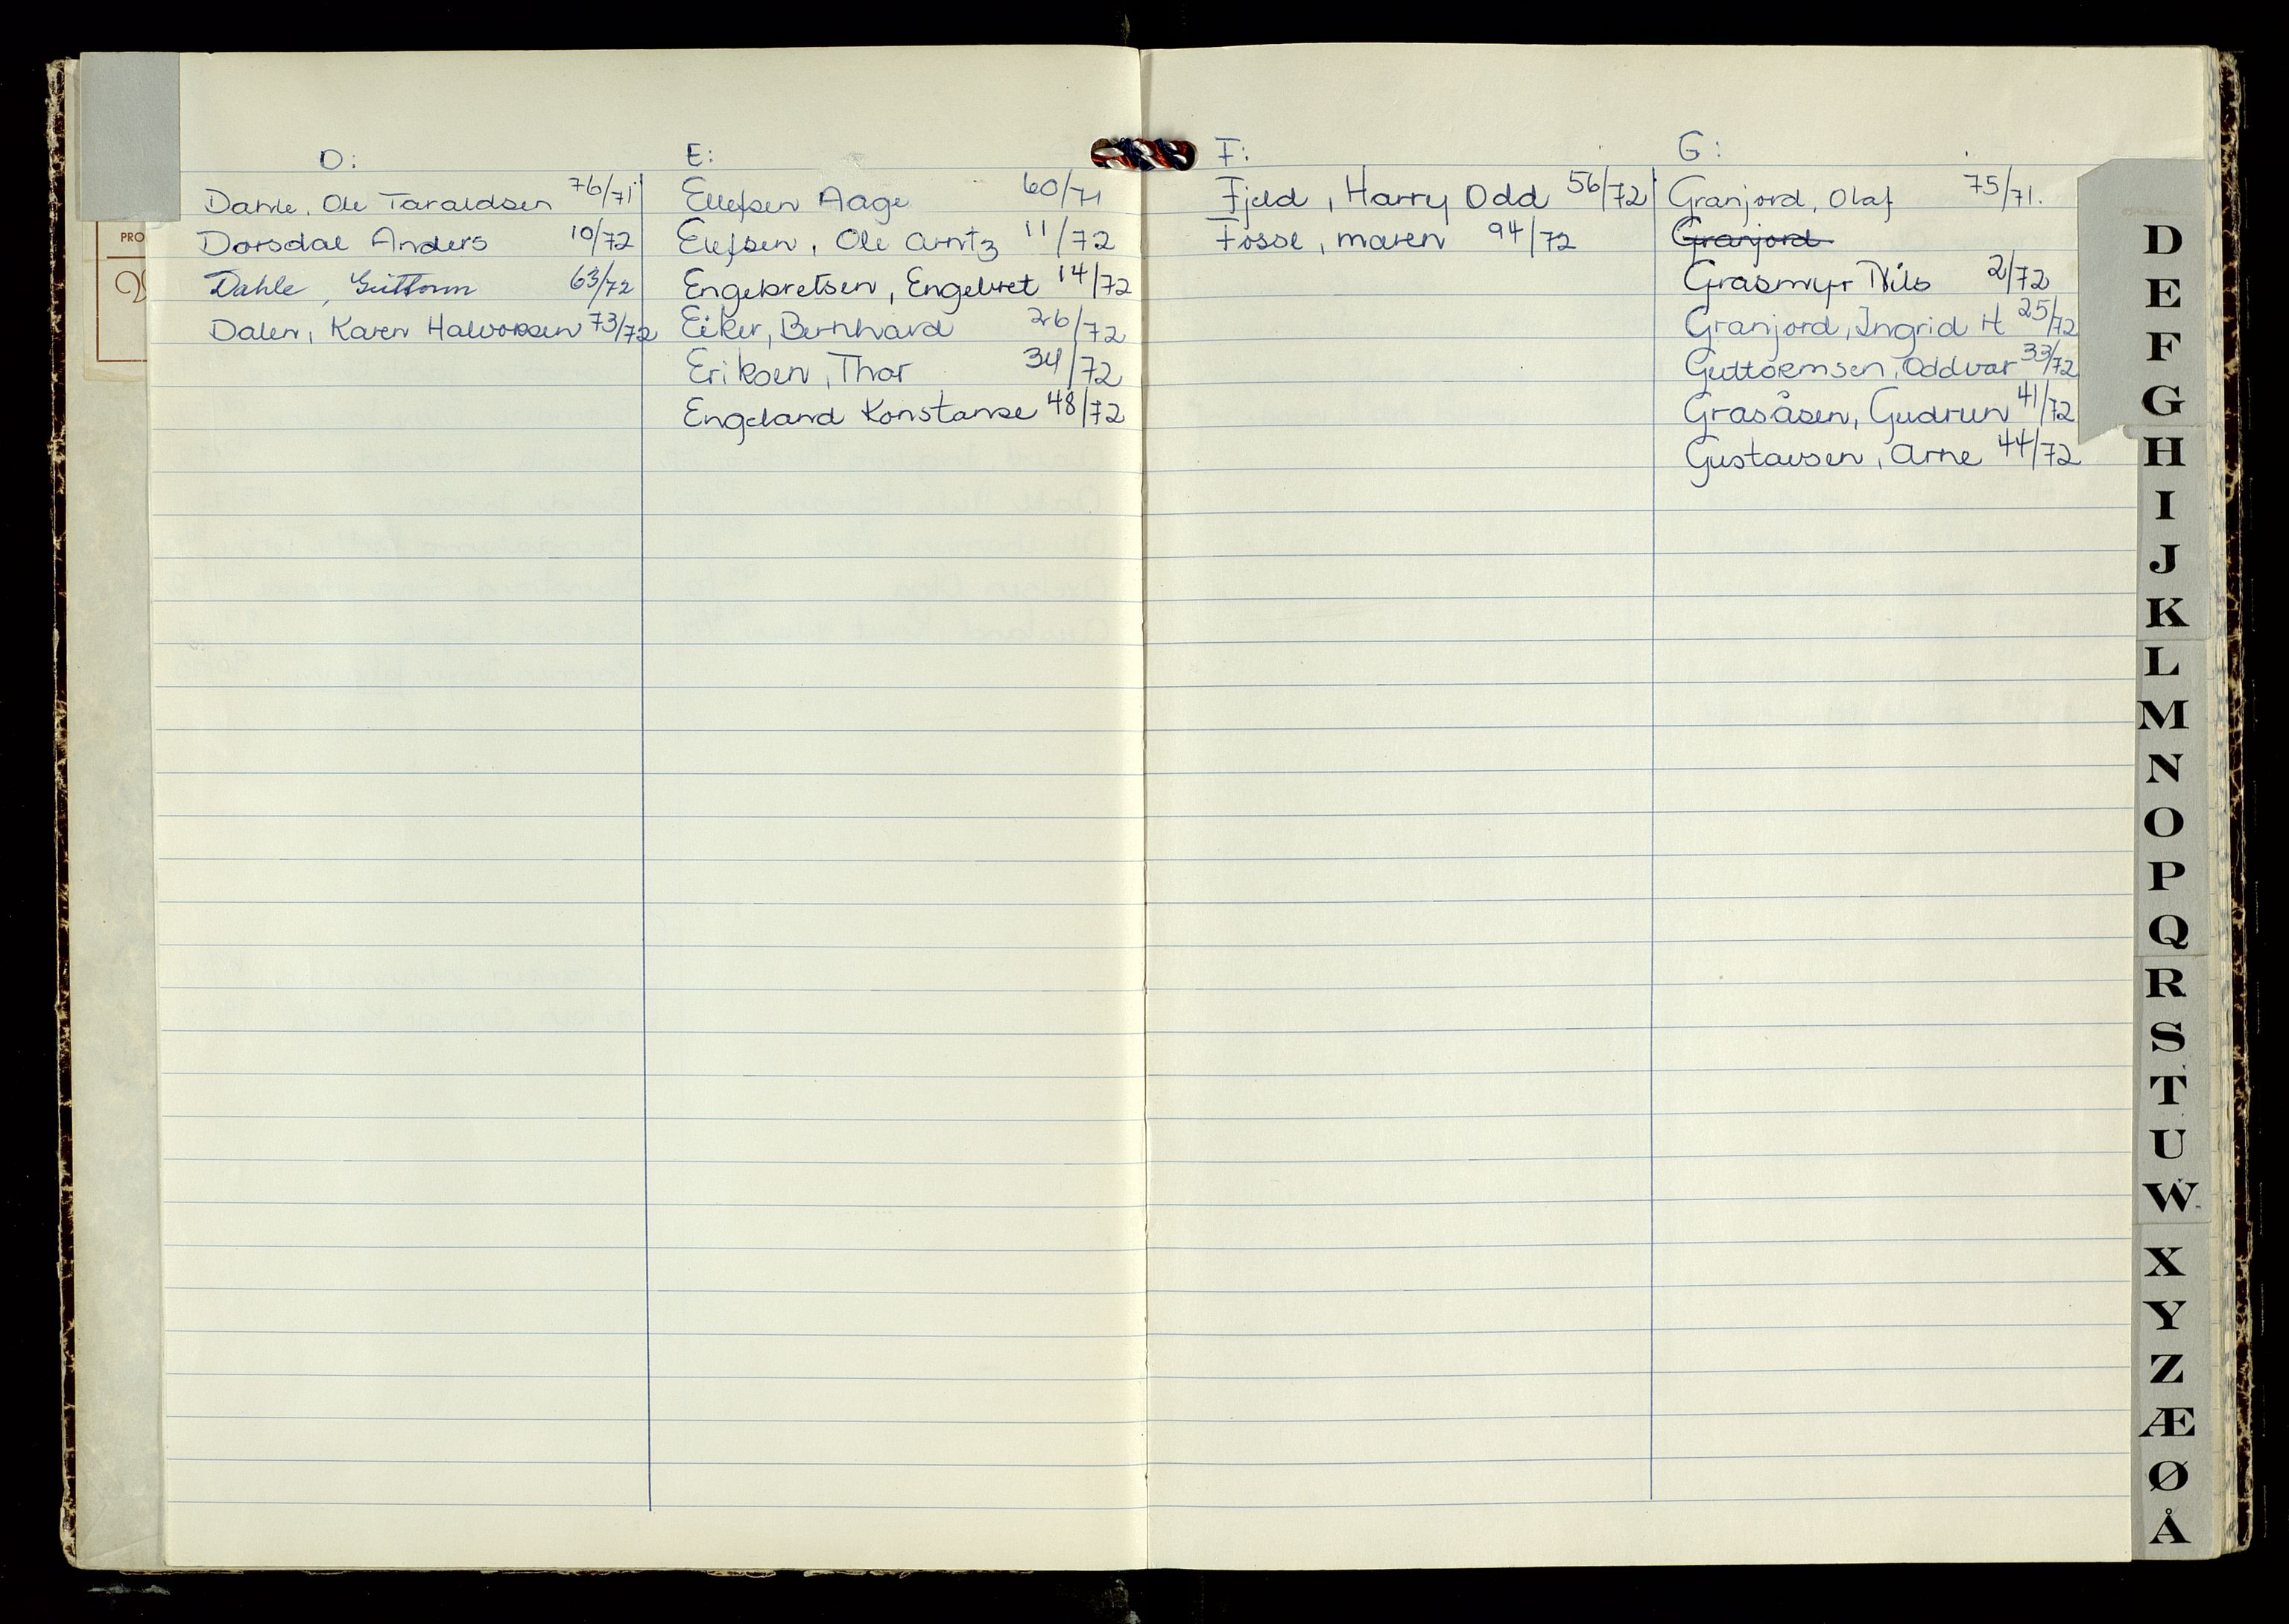 D:
Dahle, Ole Taraldsen 76/71
Dorsdal Anders 10/72
Dahle, Guttorm 63/72
Dalen, Karen Halvorsen 73/72
E:
Ellefsen Aage 60/71
Elefsen, Ole Arntz 11/72
Engebretsen, Engebret 14/72
Eiker, Bernhard 26/72
Eriksen, Thor 34/72
Engeland Konstanse 48/72
F:
Fjeld, Harry Odd 56/72
Fosse, Maren 94/72
G:
Granjord, Olaf 75/71.
Granjord
Grasmyr Nils 2/72
Granjord, Ingrid H 25/72
Guttormsen, Oddvar 33/72
Gråsåsen, Gudrun 41/72
Gustavsen, Arne 44/72
PRO
D
E
F
G
H
I
J
K
L
M
N
O
P
Q
R
S
T
U
W
X
Y
Z
Æ
Ø
Å